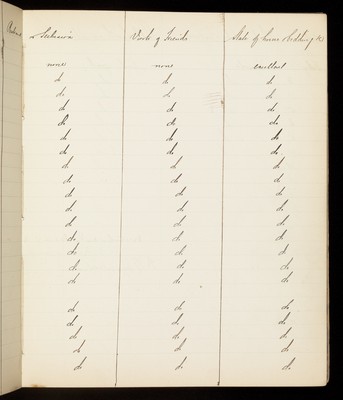 Work of Friends State of home & bedding &c
none none excellent
do do do
do do do
do do do
do do do
do do do
do do do
do do do
do do do
do do do
do do do
do do do
do do do
do do do
do do do
do do do
do do do
do do do
do do do
do do do
do do do